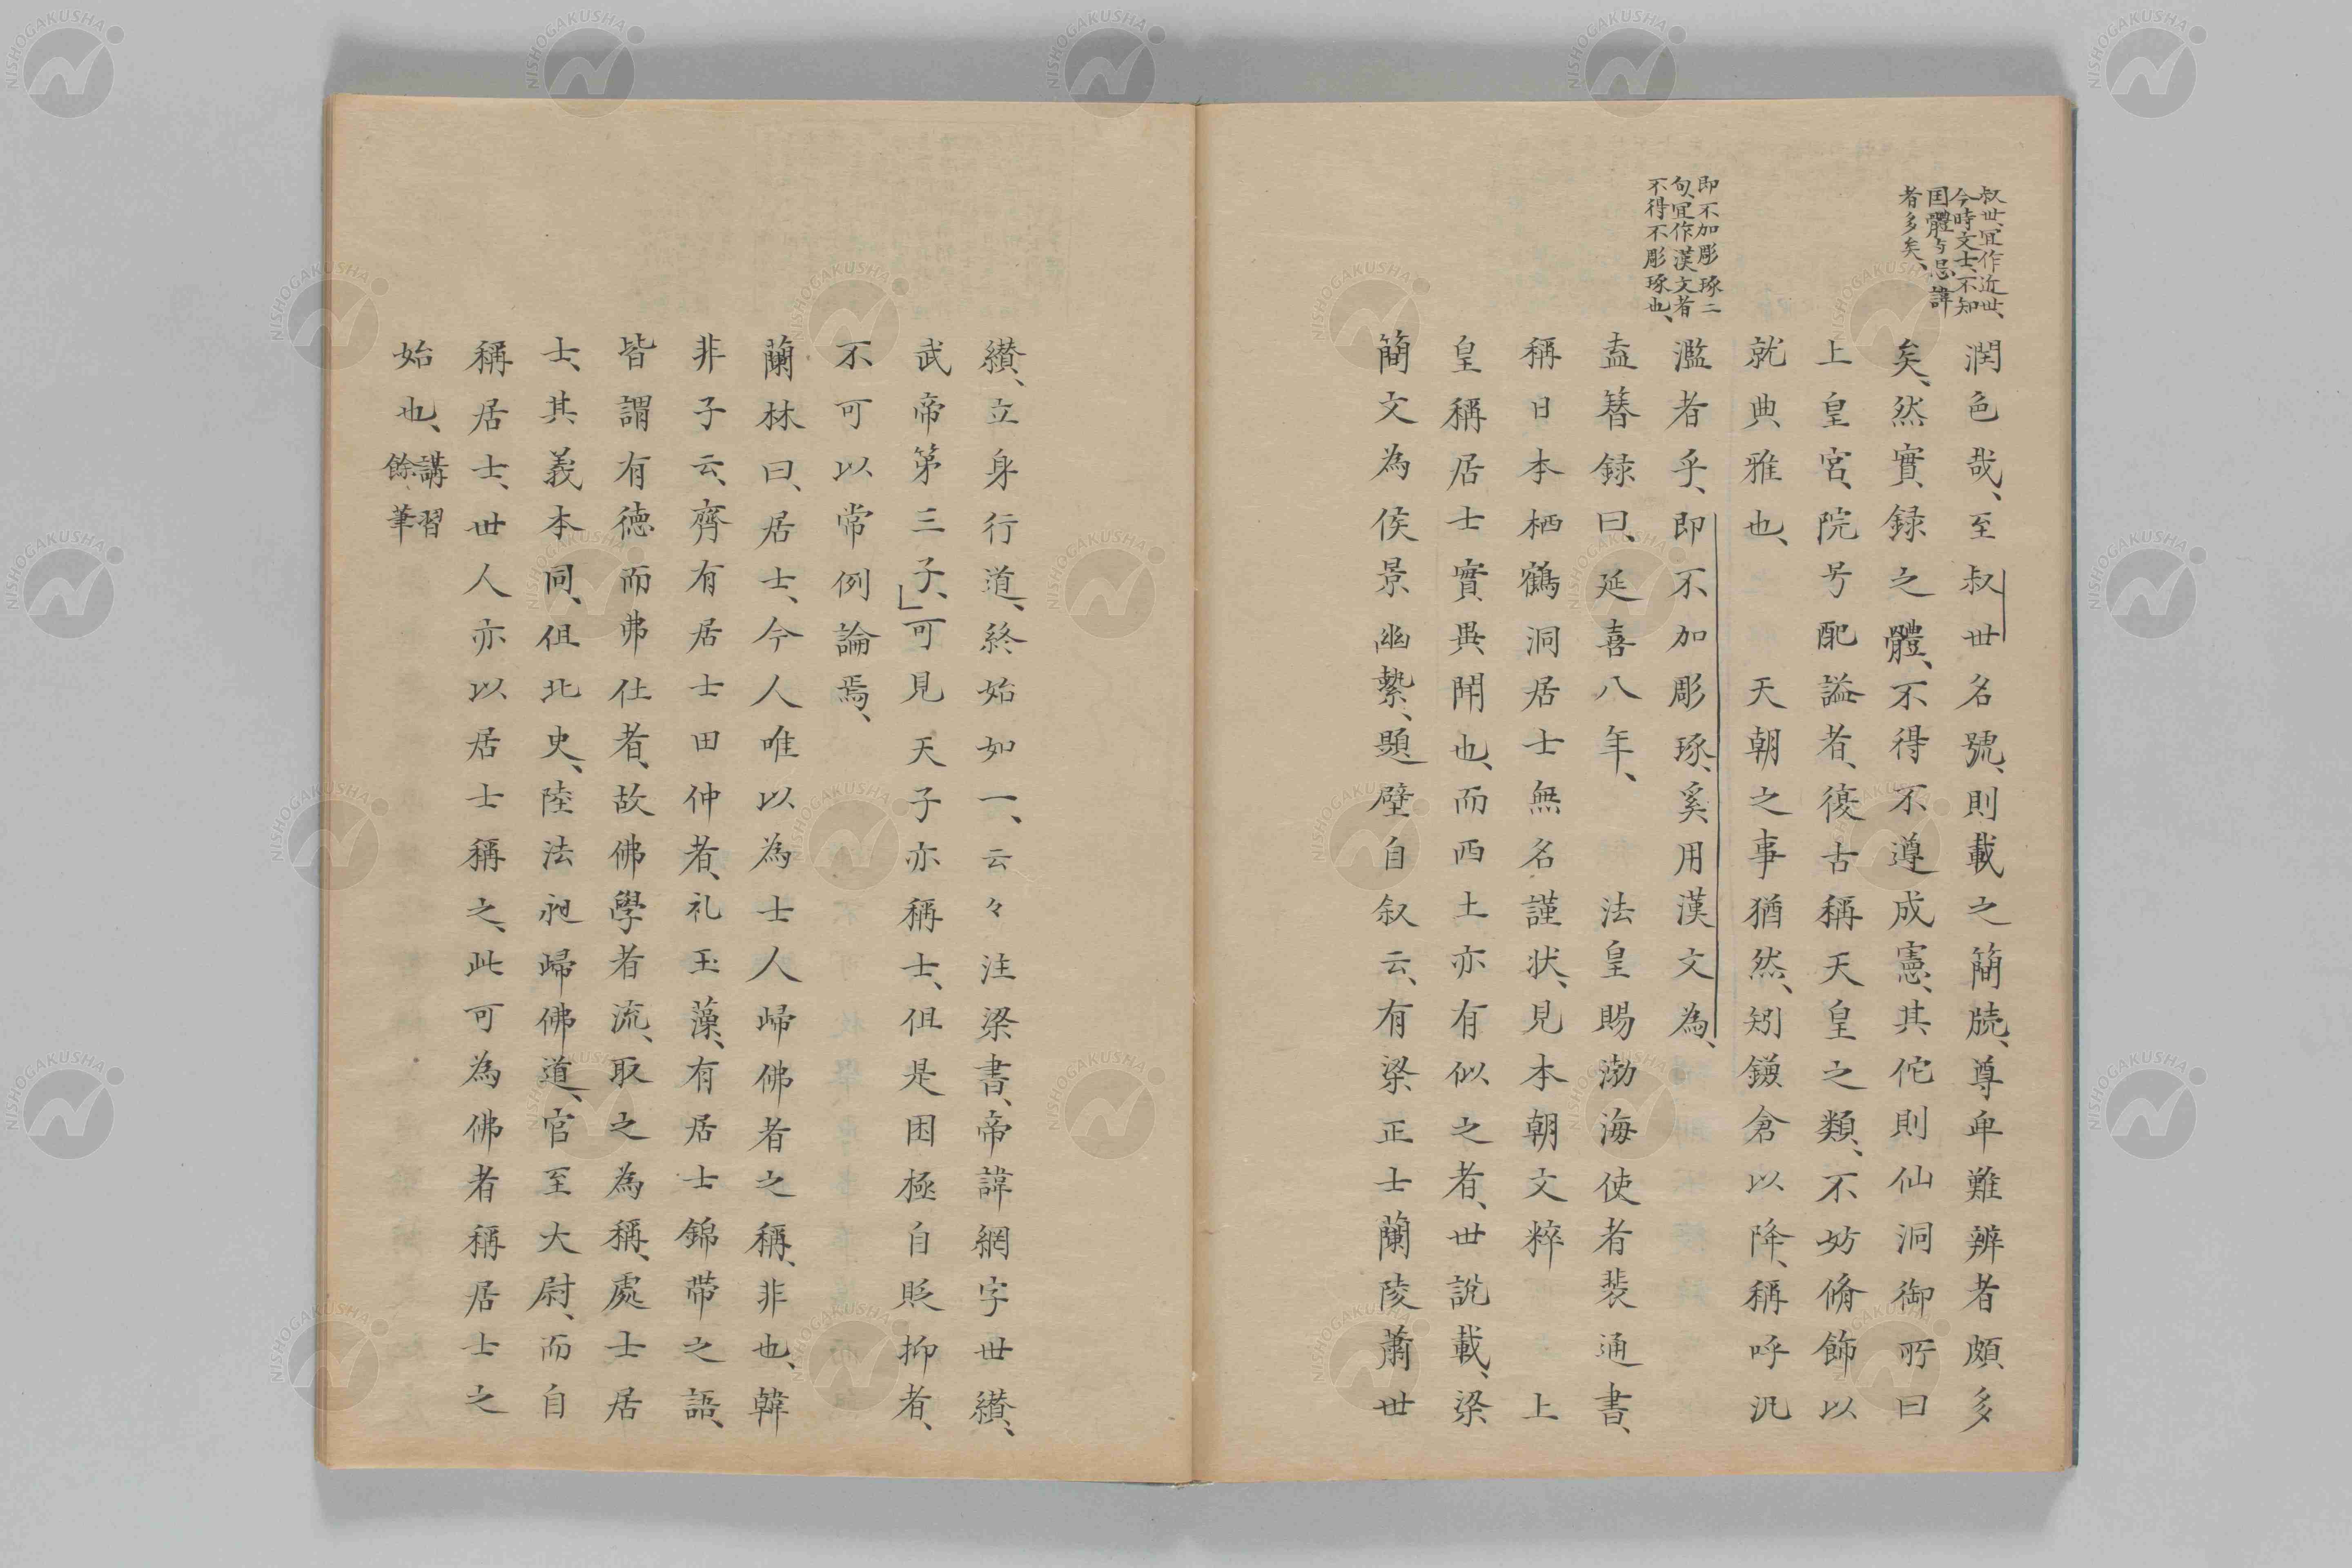 叔世、宜作近世、
今時文士、不知
国體与忌諱
者多矣、
即不加彫琢二
句、宜作漢文者
不得不彫琢也、
潤色哉、至叔世名號、則載之簡牘、尊卑難辨者頗多
矣、然實録之體、不得不遵成憲、其佗則仙洞御所曰
上皇宮、院号配謚者、復古稱天皇之類、不妨脩飾以
就典雅也、天朝之事猶然、矧鎌倉以降、稱呼汎
濫者乎、即不加彫琢、奚用漢文為、
盍簪録曰、延喜八年、法皇賜渤海使者裴逎書、
稱日本栖鶴洞居士無名謹状、見本朝文粹上
皇稱居士實異聞也、而西土亦有似之者、世説載、梁
簡文為侯景幽縶、題壁自叙云、有梁正士蘭陵蕭世
纉、立身行道、終始如一、云々注梁書、帝諱綱字世纉、
武帝第三子、」可見天子亦稱士、但是困極自貶抑者、
不可以常例論焉、
蘭林曰、居士、今人唯以為士人歸佛者之稱、非也、韓
非子云、齊有居士田仲者、礼玉藻、有居士錦帶之語、
皆謂有德而弗仕者、故佛學者流、取之為稱、處士居
士、其義本同、但北史、陸法和歸佛道、官至大尉、而自
稱居士、世人亦以居士稱之、此可為佛者稱居士之
始也、講習
餘筆
NISHOGAKUSHA